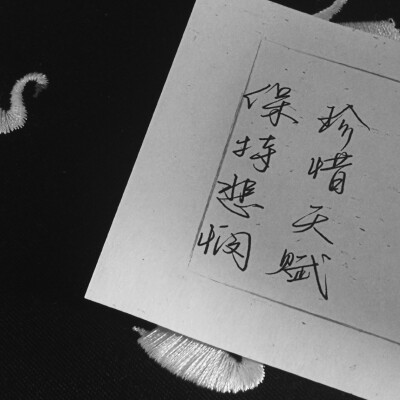 珍惜天赋
保持悲悯